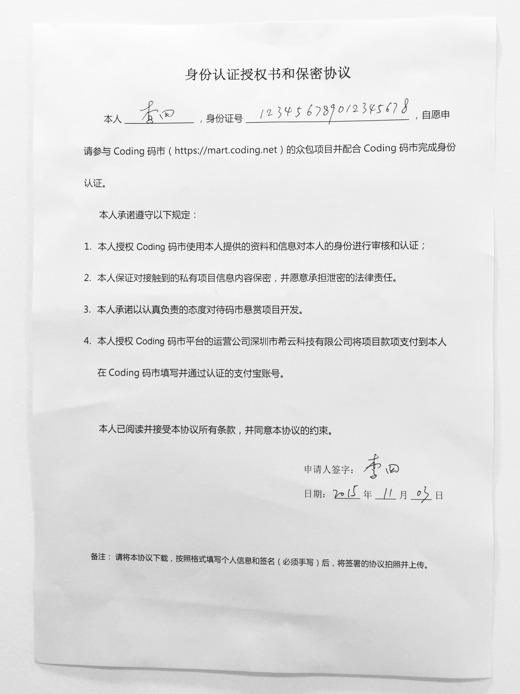 身份认证授权书和保密协议
本人 李四 ，身份证号 123456789012345678 ，自愿申
请参与 Coding 码市（https://mart.coding.net）的众包项目并配合 Coding 码市完成身份
认证。
本人承诺遵守以下规定：
1. 本人授权 Coding 码市使用本人提供的资料和信息对本人的身份进行审核和认证；
2. 本人保证对接触到的私有项目信息内容保密，并愿意承担泄密的法律责任。
3. 本人承诺以认真负责的态度对待码市悬赏项目开发。
4. 本人授权 Coding 码市平台的运营公司深圳市希云科技有限公司将项目款项支付到本人
在 Coding 码市填写并通过认证的支付宝账号。
本人已阅读并接受本协议所有条款，并同意本协议的约束。
申请人签字： 李四
日期： 2015 年 11 月 03 日
备注： 请将本协议下载，按照格式填写个人信息和签名（必须手写）后，将签署的协议拍照并上传。